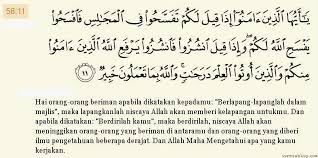 58:11
يَٰٓأَيُّهَا ٱلَّذِينَ ءَامَنُوٓا۟ إِذَا قِيلَ لَكُمْ تَفَسَّحُوا۟ فِى ٱلْمَجَٰلِسِ فَٱفْسَحُوا۟
يَفْسَحِ ٱللَّهُ لَكُمْ ۖ وَإِذَا قِيلَ ٱنشُزُوا۟ فَٱنشُزُوا۟ يَرْفَعِ ٱللَّهُ ٱلَّذِينَ ءَامَنُوا۟
مِنكُمْ وَٱلَّذِينَ أُوتُوا۟ ٱلْعِلْمَ دَرَجَٰتٍ ۚ وَٱللَّهُ بِمَا تَعْمَلُونَ خَبِيرٌ ١١
Hai orang-orang beriman apabila dikatakan kepadamu: "Berlapang-lapanglah dalam
majlis", maka lapangkanlah niscaya Allah akan memberi kelapangan untukmu. Dan
apabila dikatakan: "Berdirilah kamu", maka berdirilah, niscaya Allah akan
meninggikan orang-orang yang beriman di antaramu dan orang-orang yang diberi
ilmu pengetahuan beberapa derajat. Dan Allah Maha Mengetahui apa yang kamu
kerjakan.